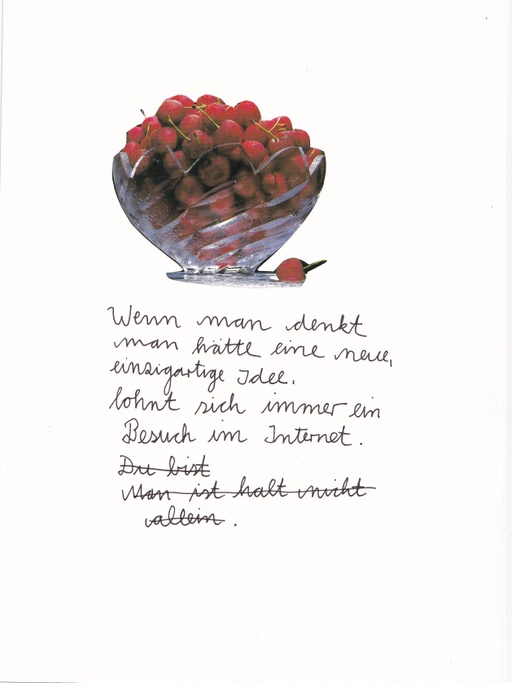 Wenn man denkt
man hätte eine neue,
einzigartige Idee.
lohnt sich immer ein
Besuch im Internet.
Du bist
Man ist halt nicht
allein.